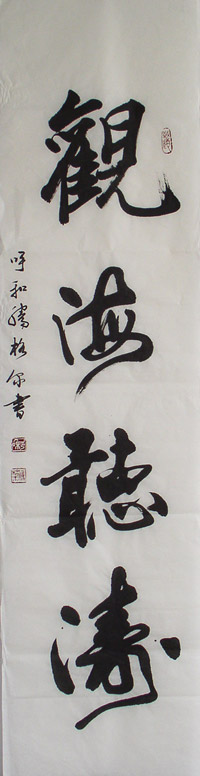 觀海聽濤
呼和騰格尔書